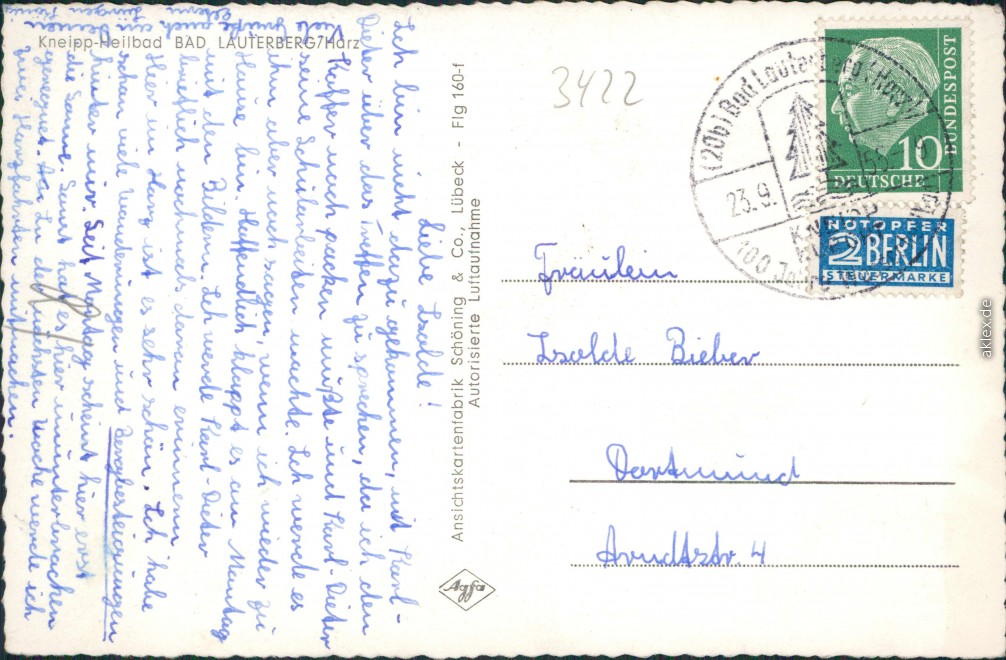 Kneipp-Heilbad BAD LAUTERBERG/Harz
3422
(20b) Bad Lauterberg (Harz)
23.9.
100 Jahre
10
DEUTSCHE
BUNDESPOST
NOTOPFER
2 BERLIN
STEUERMARKE
Liebe Isolde!
Ich bin nicht dazu gekommen, mit Karl-
Dieter über das Treffen zu sprechen, da ich den
Koffer noch packen mußte und Karl-Dieter
seine Schularbeiten machte. Ich werde es
ihm aber noch sagen, wenn ich wieder zu
Hause bin. Hoffentlich klappt es am Montag
mit den Bildern. Ich werde Karl-Dieter
brieflich noch daran erinnern.
Hier im Harz ist es sehr schön. Ich habe
schon viele Wanderungen und Bergbesteigungen
hinter mir. Seit Montag scheint hier erst
die Sonne. Sonst hat es hier ununterbrochen
geregnet. An der nächsten Woche werde ich
zwei Harzfahrten mitmachen.
Viele Grüße auch an Deinen
Eltern
Ansichtskartenfabrik Schöning & Co., Lübeck - Flg 160-f
Autorisierte Luftaufnahme
Agfa
Fräulein
Isolde Bieber
Dortmund
Arndtstr. 4
aklex.de